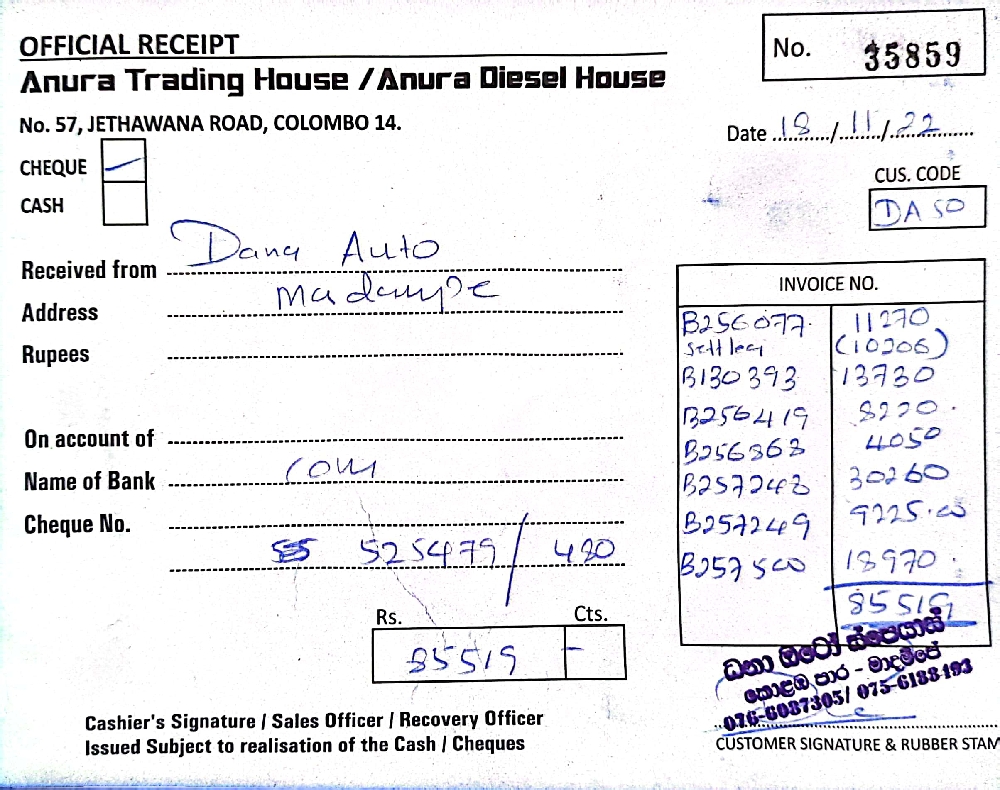 OFFICIAL RECEIPT
Anura Trading House / Anura Diesel House
No. 57, JETHAWANA ROAD, COLOMBO 14.
No. 35859
Date 18/11/22
CHEQUE
CASH
CUS. CODE
DA 50
Received from Dana Auto
Address Madampe
Rupees
On account of
Name of Bank com
Cheque No.
525479 / 480
Rs. Cts.
85519 -
INVOICE NO.
B256077. 11270
settled (10206)
B130393 13730
B256419 8220.
B256868 4050
B257248 30260
B257249 9225.00
B257500 18970.
85519
ධනා ඔටෝ ස්පෙයාස්
කොළඹ පාර - මාදම්පේ
076-6087305/ 075-6188193
CUSTOMER SIGNATURE & RUBBER STAM
Cashier's Signature / Sales Officer / Recovery Officer
Issued Subject to realisation of the Cash / Cheques